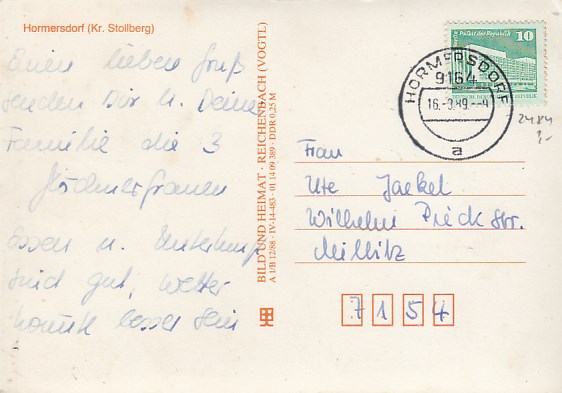 Hormersdorf (Kr. Stollberg)
Einen lieben Gruß
senden Dir u. Deiner
Familie die 3
Essen u. Unterkunft
sind gut, Wetter
könnte besser sein
BILD UND HEIMAT · REICHENBACH (VOGTL)
A 1/B 12/88 · IV-14-483 · 01 14 09 389 · DDR 0,25 M
Palast der Republik 10
HORMERSDORF
9164
16.-9.89.--9
a
2484
Frau
Ute Jaekel
Wilhelm Pieck Str.
Miltitz
7154